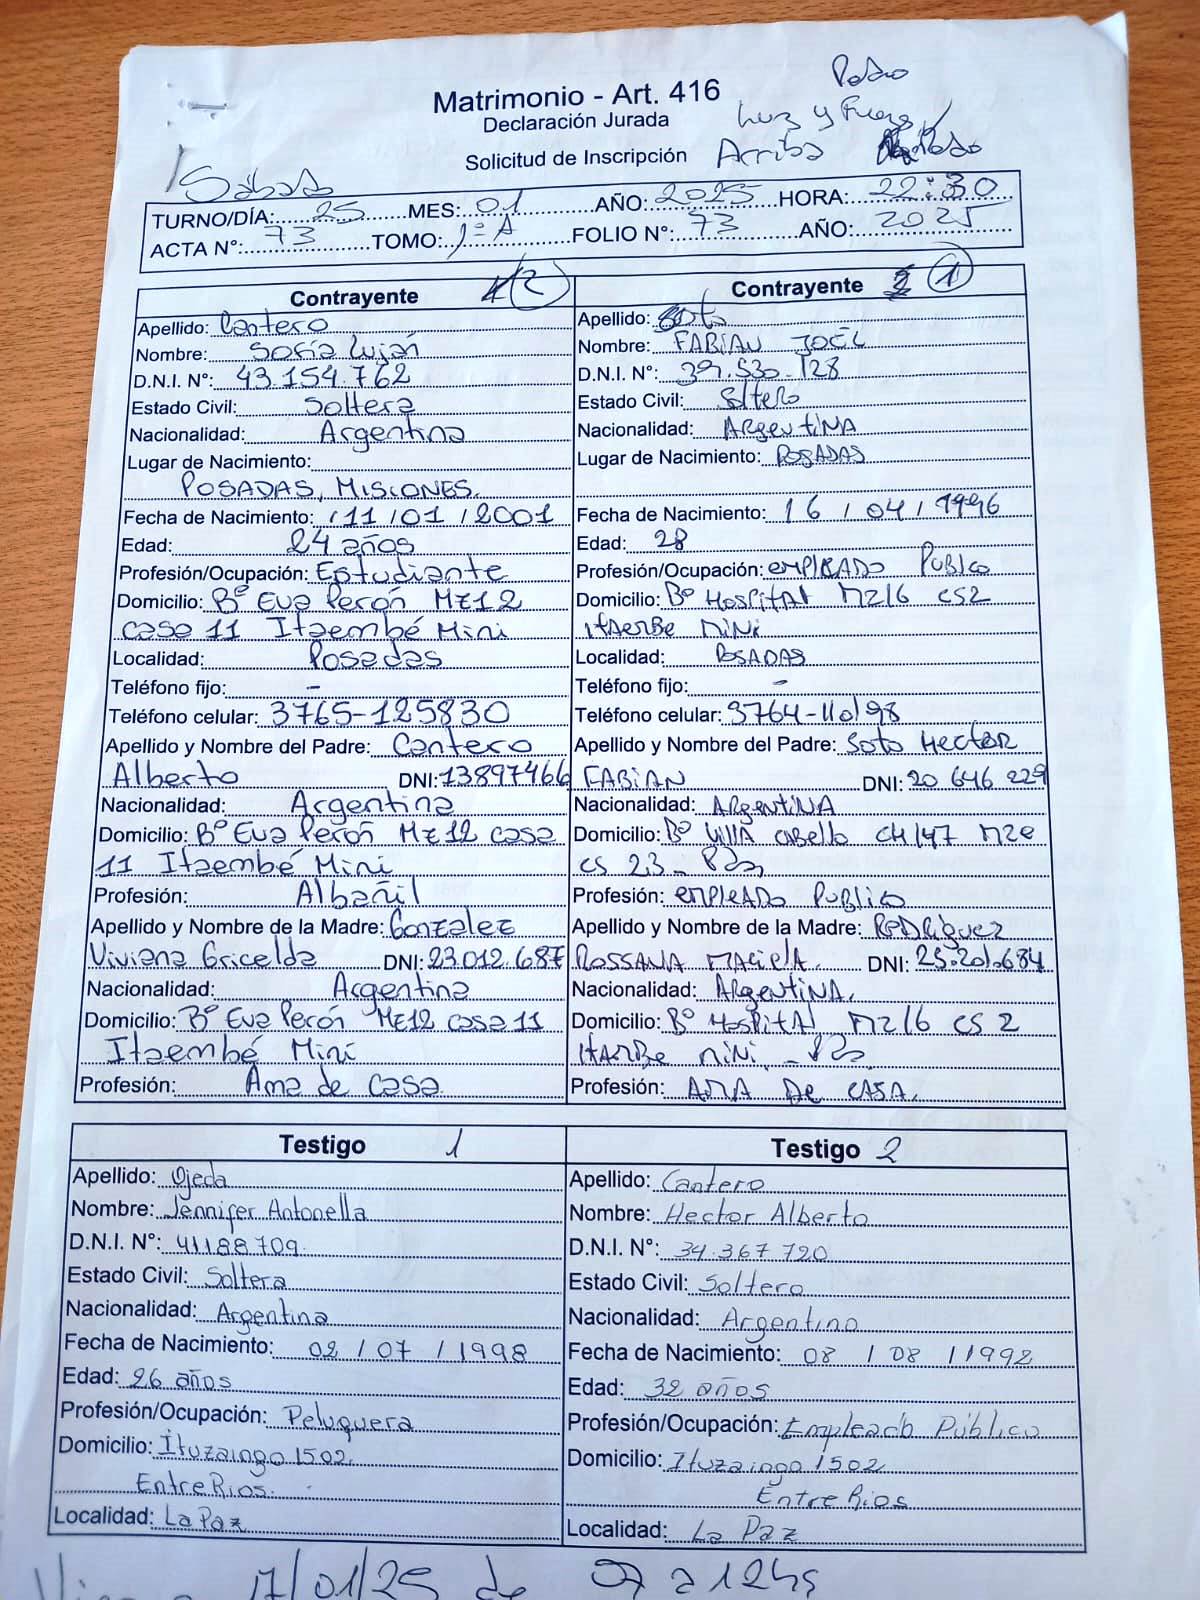 Matrimonio - Art. 416
Declaración Jurada
Luz y
Solicitud de Inscripción Arriba
Sábado
TURNO/DÍA: 25 MES: 01 AÑO: 2025 HORA: 22:30
ACTA N°: 73 TOMO: 1º A FOLIO N°: 73 AÑO: 2025
Contrayente 2
Apellido: Cantero
Nombre: Sofía Luján
D.N.I. N°: 43.154.762
Estado Civil: Soltera
Nacionalidad: Argentina
Lugar de Nacimiento:
POSADAS, MISIONES.
Fecha de Nacimiento: 11 / 01 / 2001
Edad: 24 años
Profesión/Ocupación: Estudiante
Domicilio: Bº Eva Perón MZ12
casa 11 Itaembé Mini
Localidad: Posadas
Teléfono fijo: -
Teléfono celular: 3765-125830
Apellido y Nombre del Padre: Cantero
Alberto DNI: 13897466
Nacionalidad: Argentina
Domicilio: Bº Eva Perón MZ12 casa
11 Itaembé Mini
Profesión: Albañil
Apellido y Nombre de la Madre: Gonzalez
Viviana Gricelda DNI: 23.012.687
Nacionalidad: Argentina
Domicilio: Bº Eva Perón MZ12 casa 11
Itaembé Mini
Profesión: Ama de casa
Contrayente 1
Apellido: Soto
Nombre: FABIAN JOEL
D.N.I. N°: 39.530.128
Estado Civil: Soltero
Nacionalidad: ArgentiNA
Lugar de Nacimiento: POSADAS
Fecha de Nacimiento: 16 / 04 / 1996
Edad: 28
Profesión/Ocupación: empleADO Publico
Domicilio: Bº HospitAl MZ16 CS2
ItAeMBe MiNi
Localidad: POSADAS
Teléfono fijo: -
Teléfono celular: 3764-110198
Apellido y Nombre del Padre: Soto Hector
FABiAN DNI: 20 646 229
Nacionalidad: ArgentiNA
Domicilio: Bº VillA CABello CH147 MZe
CS 23 - Pdas
Profesión: empleADo Publico
Apellido y Nombre de la Madre: RODRiguez
ROSSANA MAcielA DNI: 23.201.684
Nacionalidad: ArgentiNA.
Domicilio: Bº HospitAl MZ16 CS 2
ItAeMBe MiNi - Pdas
Profesión: AMA De CASA.
Testigo 1
Apellido: Ojeda
Nombre: Jennifer Antonella
D.N.I. N°: 41188709.
Estado Civil: Soltera
Nacionalidad: Argentina
Fecha de Nacimiento: 02 / 07 / 1998
Edad: 26 años
Profesión/Ocupación: Peluquera
Domicilio: Ituzaingo 1502.
Entre Rios.
Localidad: La Paz
Testigo 2
Apellido: Cantero
Nombre: Hector Alberto
D.N.I. N°: 34.367.720
Estado Civil: Soltero
Nacionalidad: Argentino
Fecha de Nacimiento: 08 / 08 / 1992
Edad: 32 años
Profesión/Ocupación: Empleado Público
Domicilio: Ituzaingo 1502
Entre Rios
Localidad: La Paz
17/01/25 de 07 a 12hs